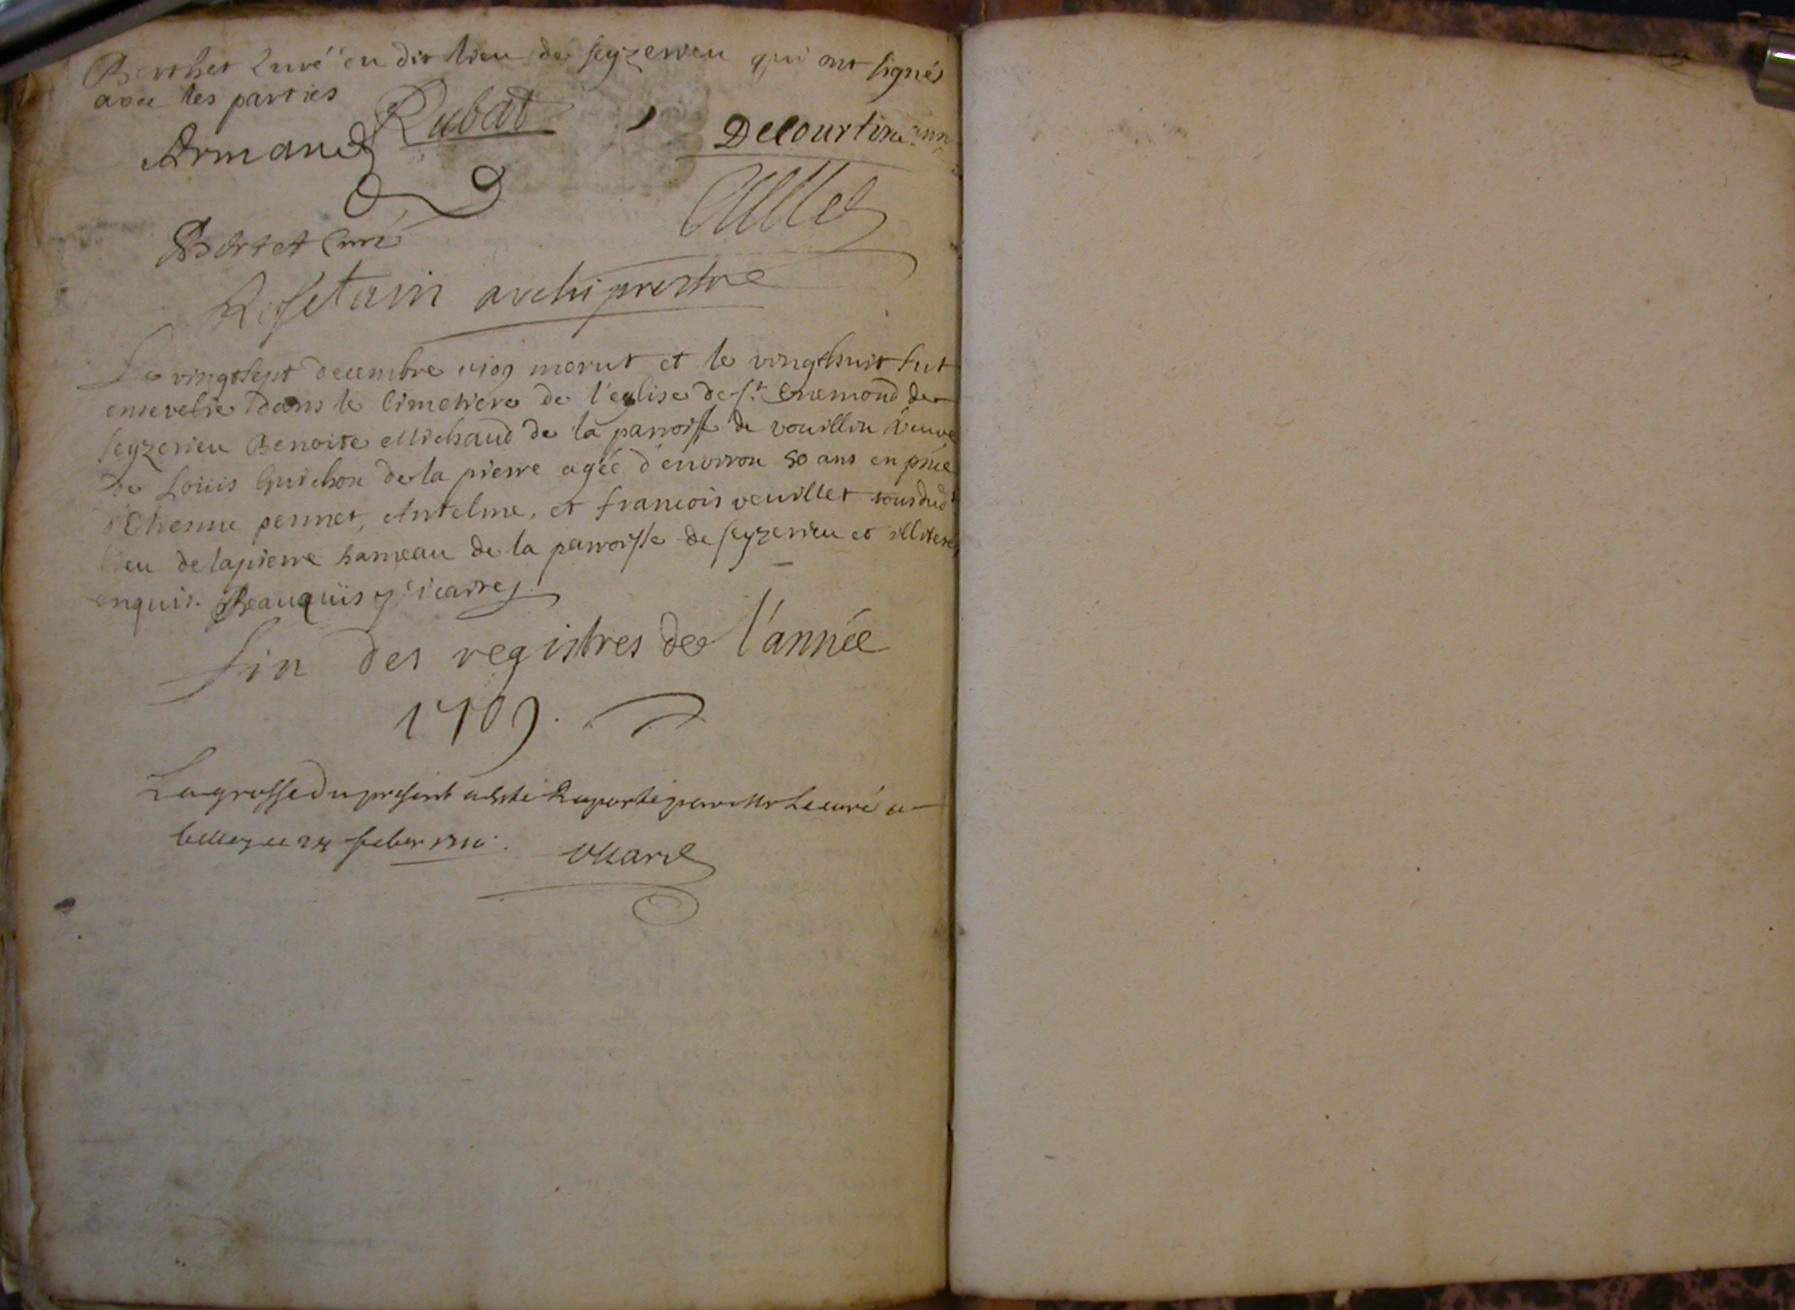 Berthet Curé du dit lieu de Seyzerieu qui ont signés
avec les parties
Armand Rubat Decourtine
Bertet Curé
Rosetain archiprestre
Le vingtsept decembre 1709 morut et le vingthuit fut
ensevelie dans le Cimetiere de l'église de St. Enemond de
Seyzerieu Benoite Michaud de la parroisse de vouillin veuve
de Loüis Guichon de la pierre agée d'environ 50 ans en prñce
d'Ethienne pennet, Antelme, et francois veuillet tous dud
lieu de lapierre hameau de la parroisse de Seyzerieu et illiteres
enquis. Beauquïis vicaire
fin des registres de l'année
1709.
La grosse du present a esté Raporté par Mr Le curé a
belley ce 24 feber 1710.